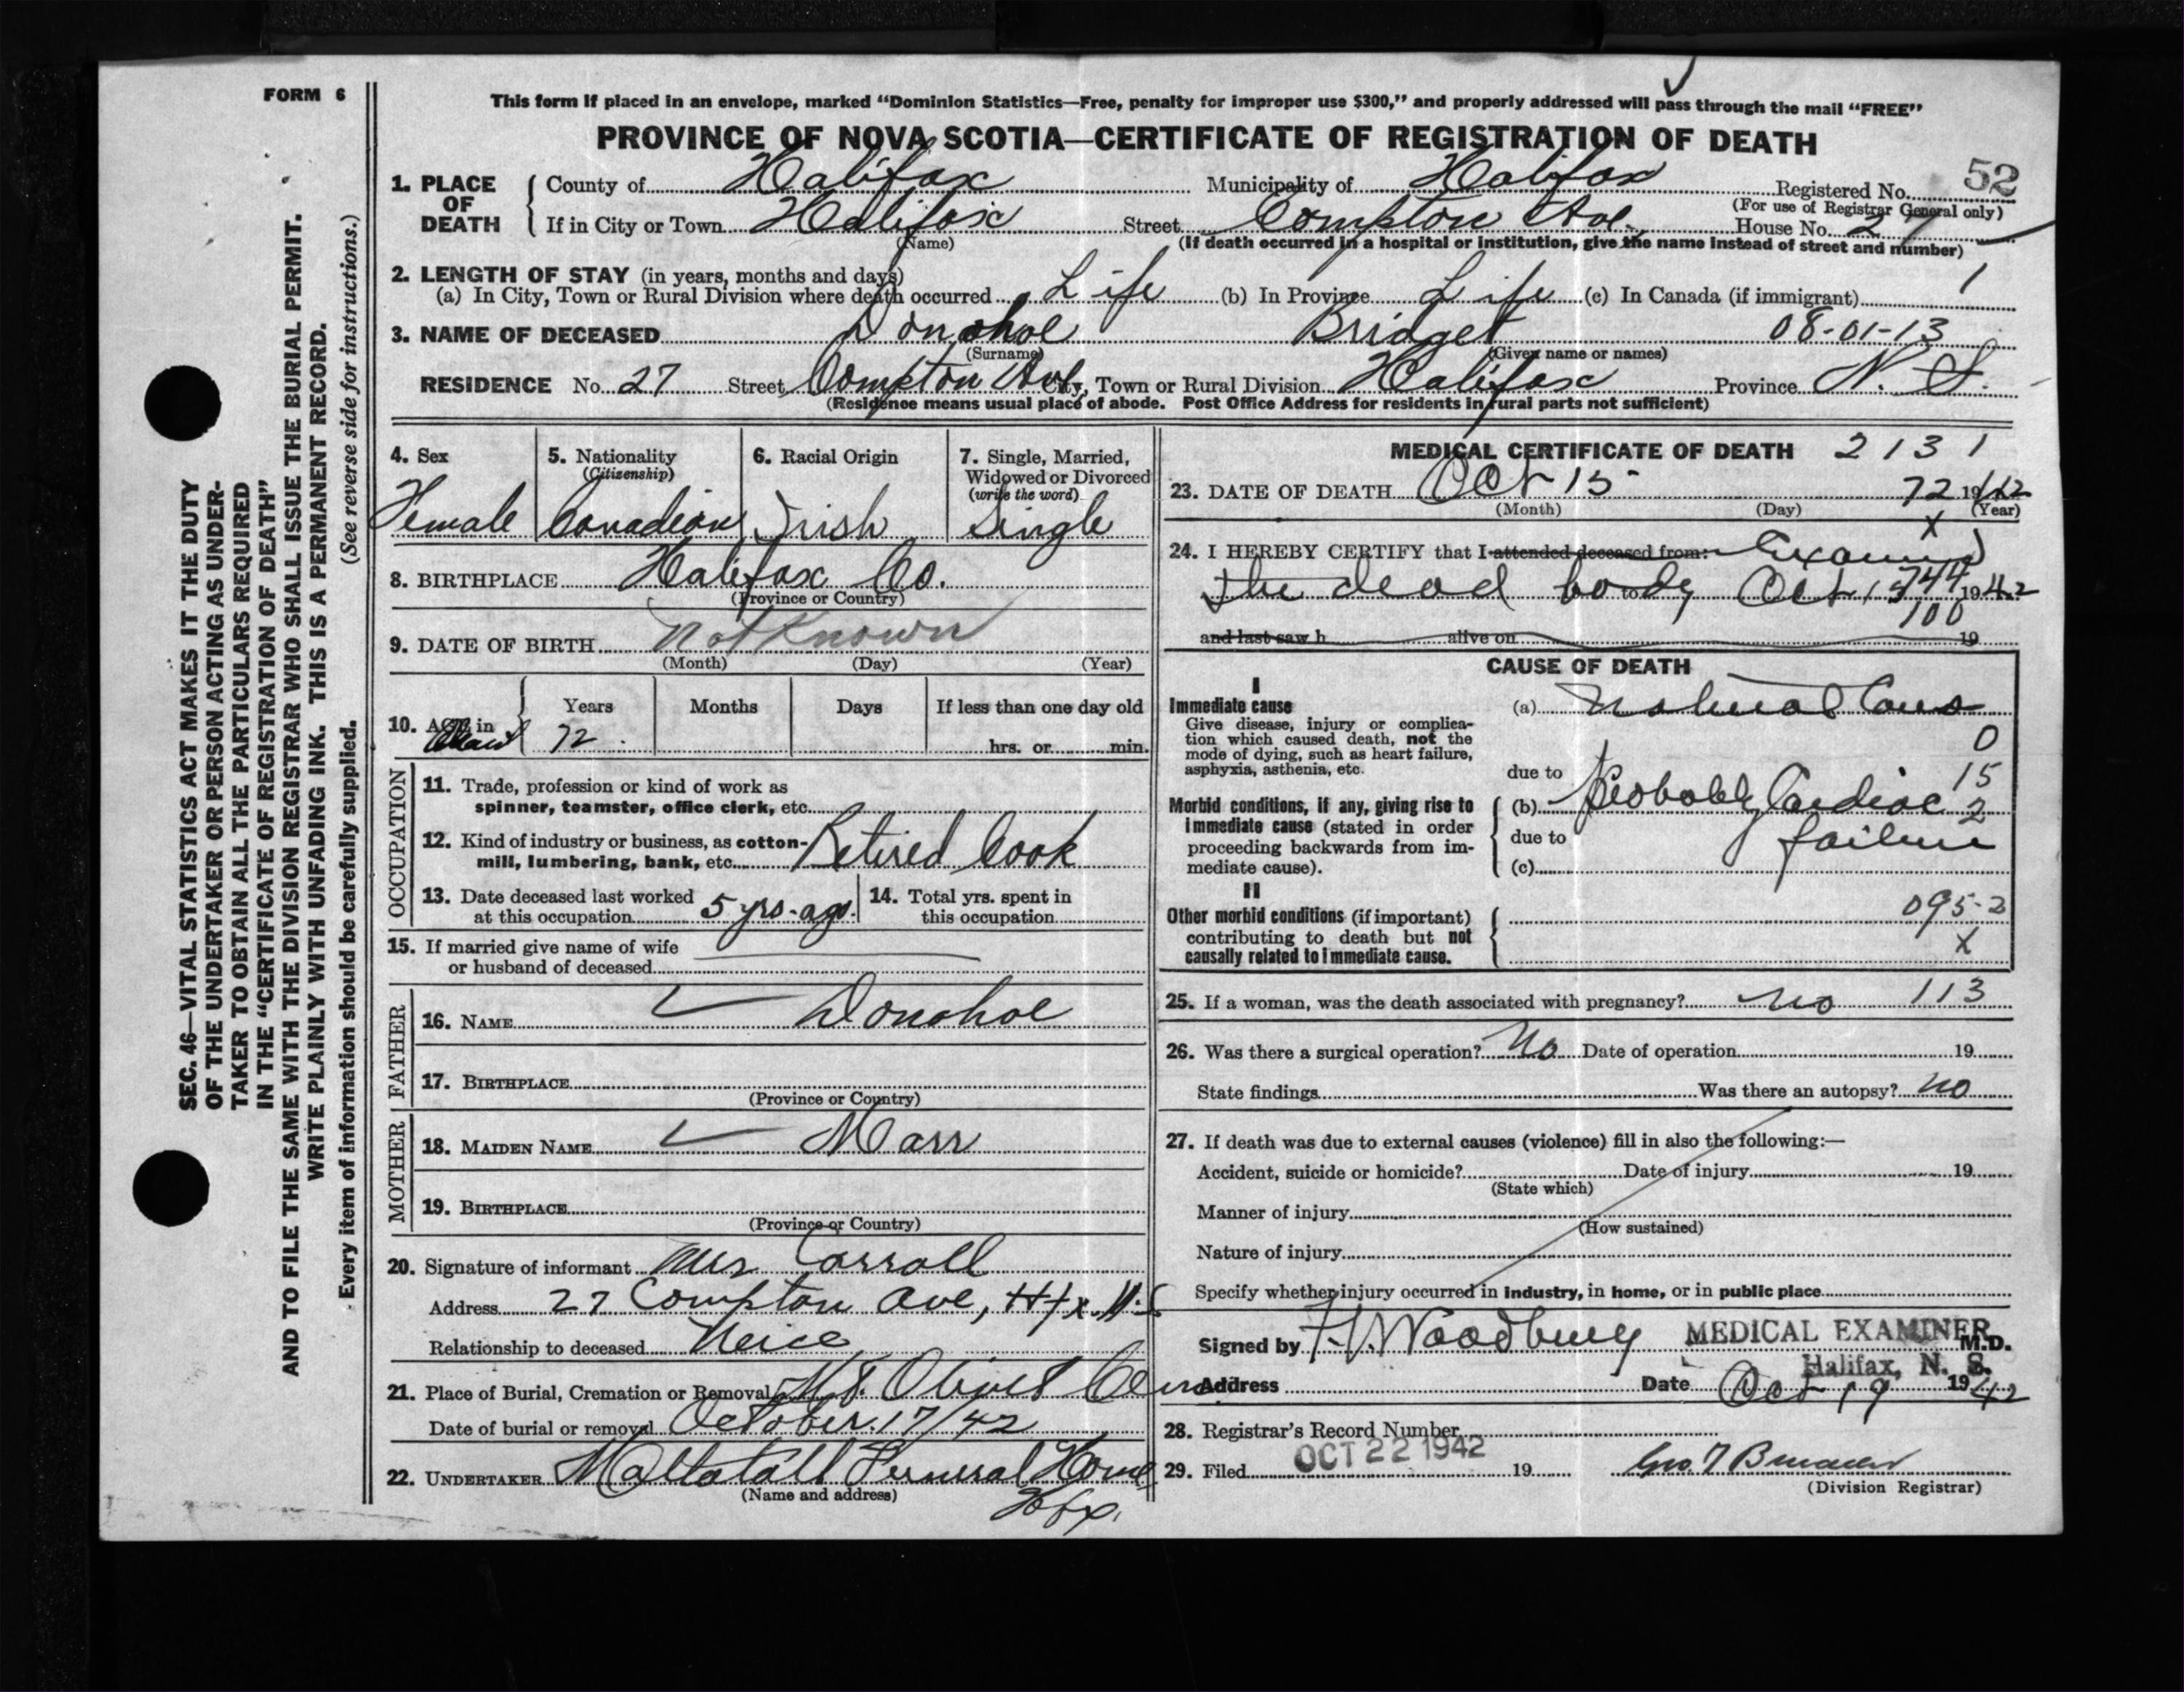 FORM 6
This form if placed in an envelope, marked “Dominion Statistics—Free, penalty for improper use $300,” and properly addressed will pass through the mail “FREE”
PROVINCE OF NOVA SCOTIA—CERTIFICATE OF REGISTRATION OF DEATH
1. PLACE OF DEATH
County of Halifax Municipality of Halifax Registered No. 52
(For use of Registrar General only)
If in City or Town Halifax Street Compton Ave. House No. 27
(Name) (If death occurred in a hospital or institution, give the name instead of street and number)
2. LENGTH OF STAY (in years, months and days)
(a) In City, Town or Rural Division where death occurred Life (b) In Province Life (c) In Canada (if immigrant) 1
3. NAME OF DECEASED Donohoe Bridget 08-01-13
(Surname) (Given name or names)
RESIDENCE No. 27 Street Compton Ave City, Town or Rural Division Halifax Province N. S.
(Residence means usual place of abode. Post Office Address for residents in rural parts not sufficient)
4. Sex
Female
5. Nationality
(Citizenship)
Canadian
6. Racial Origin
Irish
7. Single, Married,
Widowed or Divorced
(write the word)
Single
8. BIRTHPLACE Halifax Co.
(Province or Country)
9. DATE OF BIRTH Not Known
(Month) (Day) (Year)
10. AGE in
Years Months Days If less than one day old
72 hrs. or min.
OCCUPATION
11. Trade, profession or kind of work as
spinner, teamster, office clerk, etc.
12. Kind of industry or business, as cotton-
mill, lumbering, bank, etc. Retired Cook
13. Date deceased last worked
at this occupation 5 yrs. ago.
14. Total yrs. spent in
this occupation
15. If married give name of wife
or husband of deceased
FATHER
16. NAME Donohoe
17. BIRTHPLACE
(Province or Country)
MOTHER
18. MAIDEN NAME Marr
19. BIRTHPLACE
(Province or Country)
20. Signature of informant Mrs Carroll
Address 27 Compton Ave, Hfx. N.S
Relationship to deceased Neice
21. Place of Burial, Cremation or Removal Mt. Olivet Cem
Date of burial or removal October 17/42
22. UNDERTAKER Maltatall Funeral Home
(Name and address)
Hfx.
MEDICAL CERTIFICATE OF DEATH 2131
23. DATE OF DEATH Oct 15 72 1942
(Month) (Day) (Year)
x
24. I HEREBY CERTIFY that I attended deceased from: Examined
the dead body to Oct 15 744 1942
100
and last saw h alive on 19
CAUSE OF DEATH
I
Immediate cause
Give disease, injury or complica-
tion which caused death, not the
mode of dying, such as heart failure,
asphyxia, asthenia, etc.
(a) Natural Cause
0
due to 15
Morbid conditions, if any, giving rise to
immediate cause (stated in order
proceeding backwards from im-
mediate cause).
(b) Probably Cardiac 2
due to failure
(c)
II
Other morbid conditions (if important)
contributing to death but not
causally related to immediate cause.
095-2
x
25. If a woman, was the death associated with pregnancy? No 113
26. Was there a surgical operation? No Date of operation 19
State findings Was there an autopsy? No
27. If death was due to external causes (violence) fill in also the following:—
Accident, suicide or homicide? Date of injury 19
(State which)
Manner of injury
(How sustained)
Nature of injury
Specify whether injury occurred in industry, in home, or in public place
Signed by F.V. Woodbury MEDICAL EXAMINER M.D.
Halifax, N. S.
Address Date Oct 19 1942
28. Registrar's Record Number
29. Filed OCT 22 1942 19
(Division Registrar)
SEC. 46—VITAL STATISTICS ACT MAKES IT THE DUTY
OF THE UNDERTAKER OR PERSON ACTING AS UNDER-
TAKER TO OBTAIN ALL THE PARTICULARS REQUIRED
IN THE “CERTIFICATE OF REGISTRATION OF DEATH”
AND TO FILE THE SAME WITH THE DIVISION REGISTRAR WHO SHALL ISSUE THE BURIAL PERMIT.
WRITE PLAINLY WITH UNFADING INK. THIS IS A PERMANENT RECORD.
Every item of information should be carefully supplied. (See reverse side for instructions.)